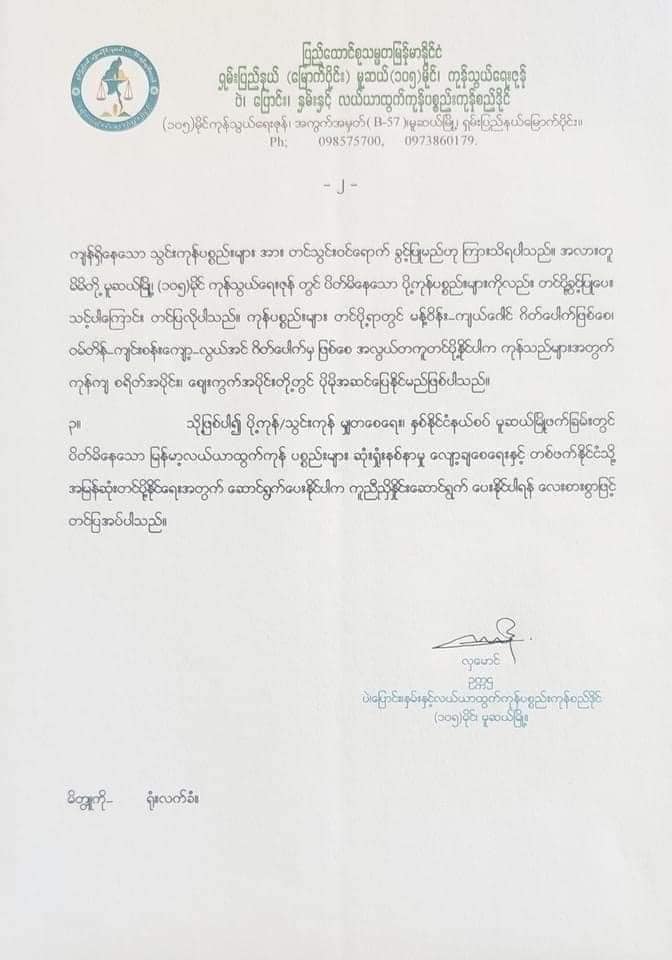 ပြည်ထောင်စုသမ္မတမြန်မာနိုင်ငံ
ရှမ်းပြည်နယ် (မြောက်ပိုင်း) မူဆယ်(၁၀၅)မိုင်၊ ကုန်သွယ်ရေးဇုန်
ပဲ၊ ပြောင်း၊ နှမ်းနှင့် လယ်ယာထွက်ကုန်ပစ္စည်းကုန်စည်ဒိုင်
(၁၀၅)မိုင်ကုန်သွယ်ရေးဇုန်၊ အကွက်အမှတ်( B-57 )၊မူဆယ်မြို့၊ ရှမ်းပြည်နယ်မြောက်ပိုင်း။
Ph; 098575700, 0973860179.
- ၂ -
ကျန်ရှိနေသော သွင်းကုန်ပစ္စည်းများ အား တင်သွင်းဝင်ရောက် ခွင့်ပြုမည်ဟု ကြားသိရပါသည်။ အလားတူ
မိမိတို့ မူဆယ်မြို့ (၁၀၅)မိုင် ကုန်သွယ်ရေးဇုန် တွင် ပိတ်မိနေသော ပို့ကုန်ပစ္စည်းများကိုလည်း တင်ပို့ခွင့်ပြုပေး
သင့်ပါကြောင်း တင်ပြလိုပါသည်။ ကုန်ပစ္စည်းများ တင်ပို့ရာတွင် မန့်ဝိန်း-ကျယ်ဂေါင် ဂိတ်ပေါက်ဖြစ်စေ၊
ဝမ်တိန်-ကျင်းစန်းကျော့-လွယ်အင် ဂိတ်ပေါက်မှ ဖြစ်စေ အလွယ်တကူတင်ပို့နိုင်ပါက ကုန်သည်များအတွက်
ကုန်ကျ စရိတ်အပိုင်း၊ ဈေးကွက်အပိုင်းတို့တွင် ပိုမိုအဆင်ပြေနိုင်မည်ဖြစ်ပါသည်။
၃။ သို့ဖြစ်ပါ၍ ပို့ကုန်/သွင်းကုန် မျှတစေရေး၊ နှစ်နိုင်ငံနယ်စပ် မူဆယ်မြို့ဖက်ခြမ်းတွင်
ပိတ်မိနေသော မြန်မာ့လယ်ယာထွက်ကုန် ပစ္စည်းများ ဆုံးရှုံးနစ်နာမှု လျော့ချစေရေးနှင့် တစ်ဖက်နိုင်ငံသို့
အမြန်ဆုံးတင်ပို့နိုင်ရေးအတွက် ဆောင်ရွက်ပေးနိုင်ပါက ကူညီညှိနှိုင်းဆောင်ရွက် ပေးနိုင်ပါရန် လေးစားစွာဖြင့်
တင်ပြအပ်ပါသည်။
လှမောင်
ဥက္ကဌ
ပဲ၊ပြောင်း၊နှမ်းနှင့်လယ်ယာထွက်ကုန်ပစ္စည်းကုန်စည်ဒိုင်
(၁၀၅)မိုင်၊ မူဆယ်မြို့။
မိတ္တူကို- ရုံးလက်ခံ။